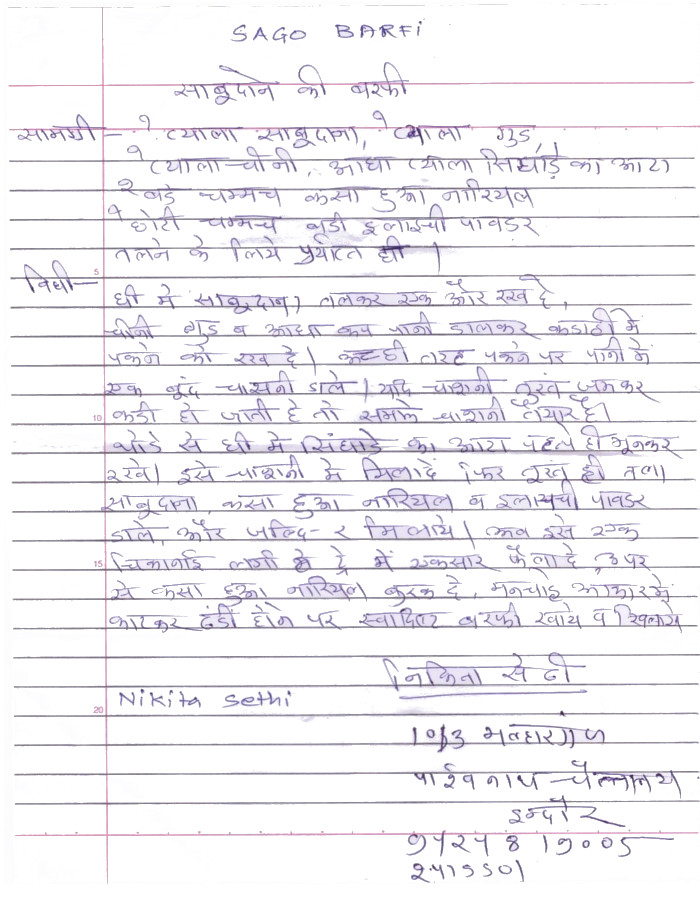 SAGO BARFI
साबुदाने की बरफी
सामग्री - १ प्याला साबुदाना, १ प्याला गुड,
१ प्याला चीनी, आधा प्याला सिंघाड़े का आटा
२ बडे चम्मच कसा हुआ नारियल
१ छोटी चम्मच बडी इलाइची पावडर
तलने के लिये पर्याप्त घी ।
विधी -
घी मे साबुदाना तलकर एक और रख दे,
चीनी गुड व आधा कप पानी डालकर कडाही में
पकने को रख दे । अच्छी तरह पकने पर पानी में
एक बुंद चाशनी डाले । यदि चाशनी तुरंत जमकर
कडी हो जाती है तो समझे चाशनी तैयार है।
थोडे से घी मे सिंघाडे का आटा पहले ही भूनकर
रखे। इसे चाशनी मे मिलादें फिर तुरंत ही तला
साबुदाना, कसा हुआ नारियल व इलायची पावडर
डाले, और जल्दि-२ मिलाये । अब इसे एक
चिकनाई लगी ट्रे में एकसार फैला दे, उपर
से कसा हुआ नारियल बुरक दे, मनचाहे आकार में
काटकर ठंडी होने पर स्वादिष्ट बरफी खाये व खिलाये
निकिता सेठी
Nikita Sethi
10/3 मल्हारगंज
पार्श्वनाथ चैत्यालय
इन्दौर